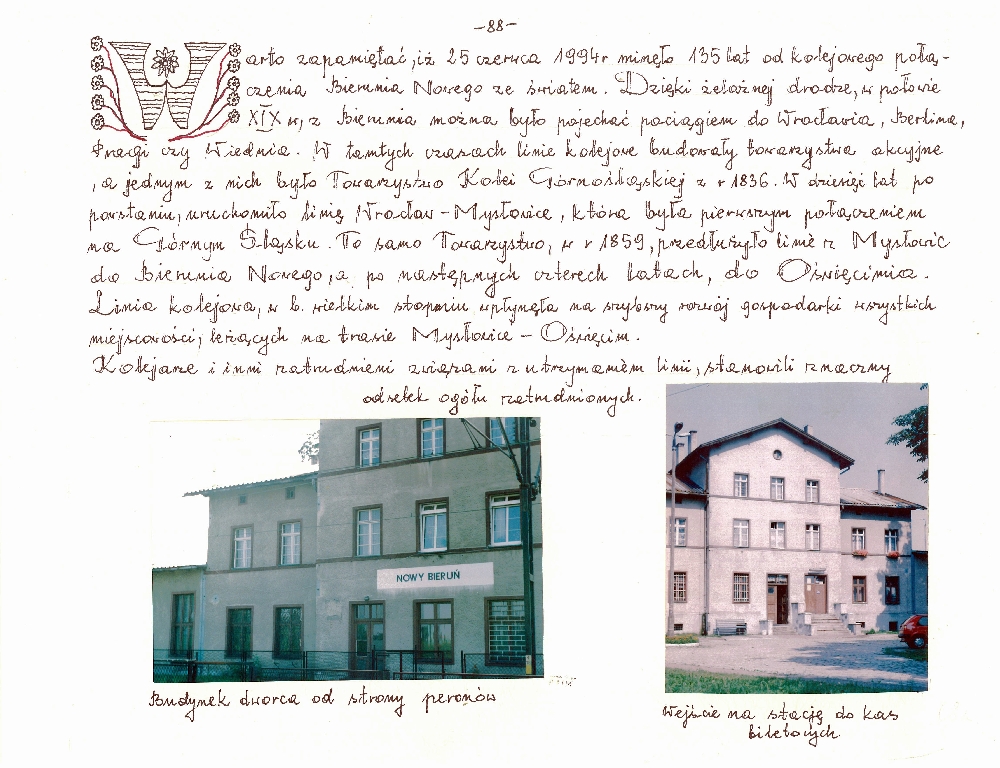 -88-
Warto zapamiętać, iż 25 czerwca 1994r minęło 135 lat od kolejowego połą-
czenia Bierunia Nowego ze światem. Dzięki żelaznej drodze, w połowie
XIX w, z Bierunia można było pojechać pociągiem do Wrocławia, Berlina,
Pragi czy Wiednia. W tamtych czasach linie kolejowe budowały towarzystwa akcyjne
, a jednym z nich było Towarzystwo Kolei Górnośląskiej z r 1836. W dziesięć lat po
powstaniu, uruchomiło linię Wrocław - Mysłowice, która była pierwszym połączeniem
na Górnym Śląsku. To samo Towarzystwo, w r 1859, przedłużyło linię z Mysłowic
do Bierunia Nowego, a po następnych czterech latach, do Oświęcimia.
Linia kolejowa, w b. wielkim stopniu wpłynęła na szybszy rozwój gospodarki wszystkich
miejscowości, leżących na trasie Mysłowice - Oświęcim.
Kolejarze i inni zatrudnieni związani z utrzymaniem linii, stanowili znaczny
odsetek ogółu zatrudnionych.
NOWY BIERUŃ
Budynek dworca od strony peronów
Wejście na stację do kas
biletowych.